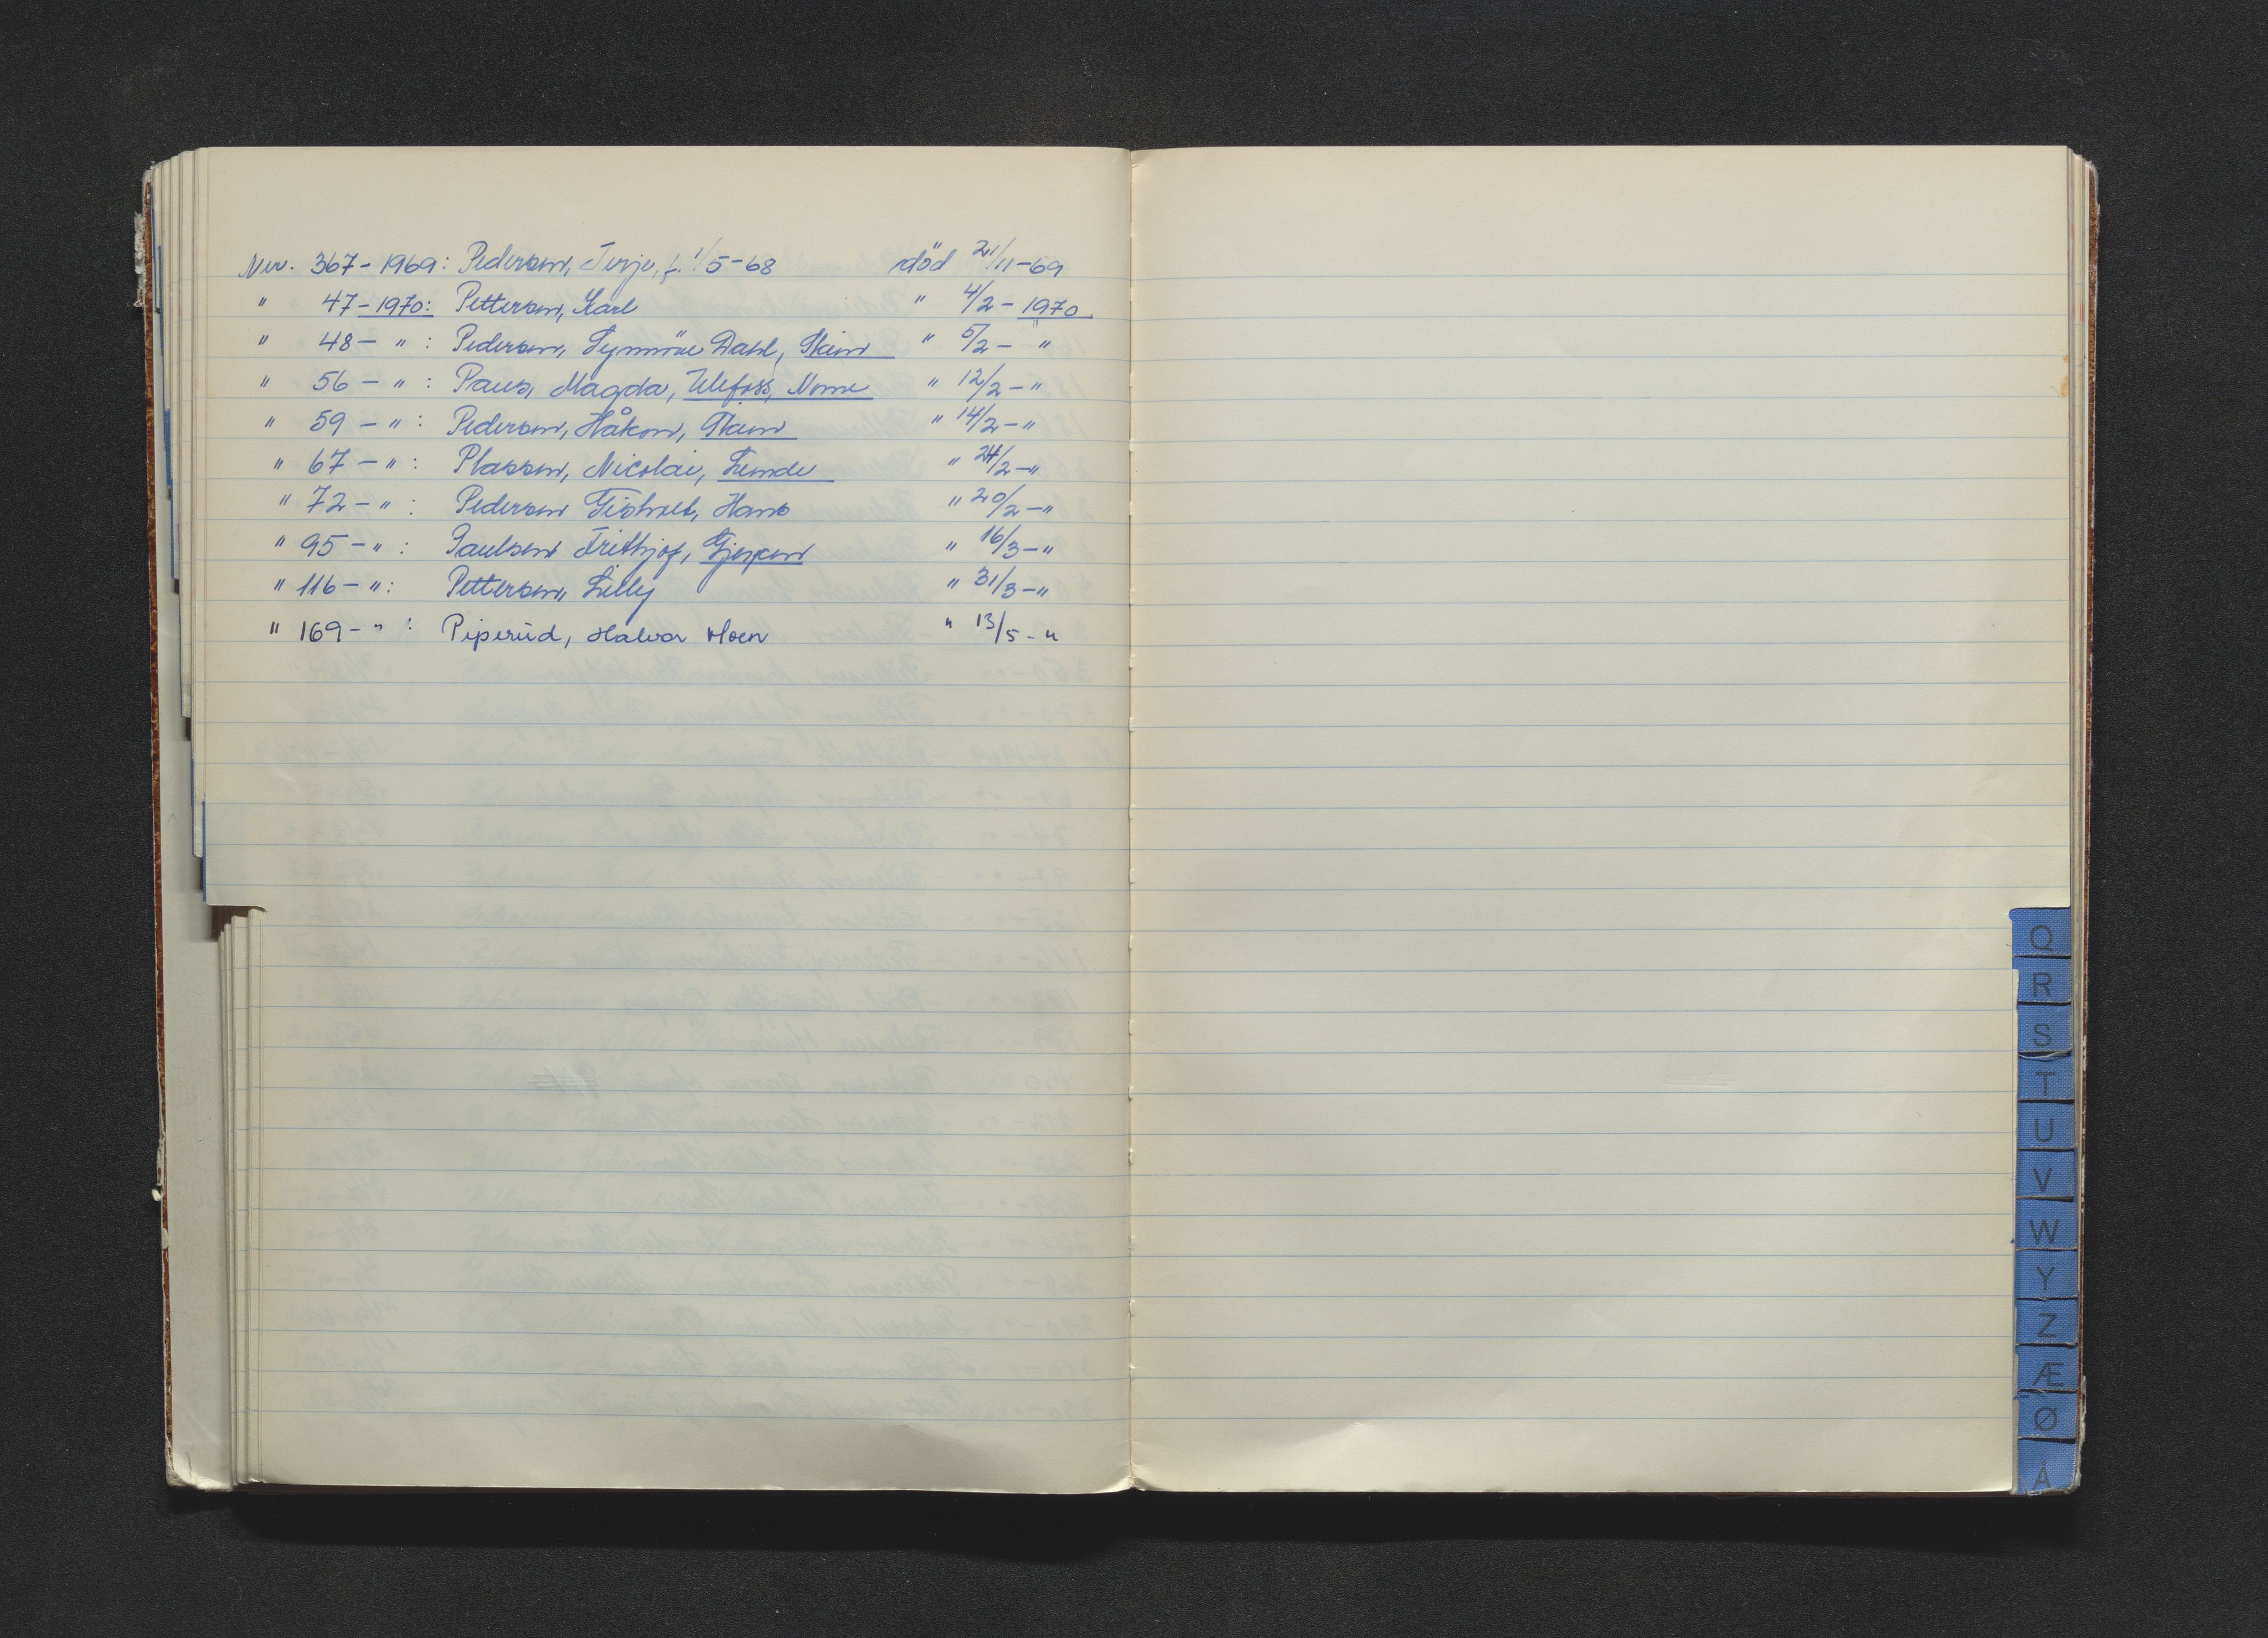 Nr. 367 - 1969: Pedersen, Terje, f. 1/5-68 död 21/11-69
" 47 - 1970: Pettersen, Karl " 4/2 - 1970
" 48 - " : Pedersen, Synnöve Dahl, Skien " 5/2 - "
" 56 - " : Paus, Magda, Ulefoss, Nome " 12/2 - "
" 59 - " : Pedersen, Håkon, Skien " 14/2 - "
" 67 - " : Plassen, Nicolai, Lunde " 24/2 - "
" 72 - " : Pedersen Hans " 20/2 - "
" 95 - " : Paulsen Frithjof, Gjerpen " 16/3 - "
" 116 - " : Pettersen, Lilly " 31/3 - "
" 169 - " : Piperud, Halvor Moen " 13/5 - "
Q
R
S
T
U
V
W
Y
Z
Æ
Ø
Å